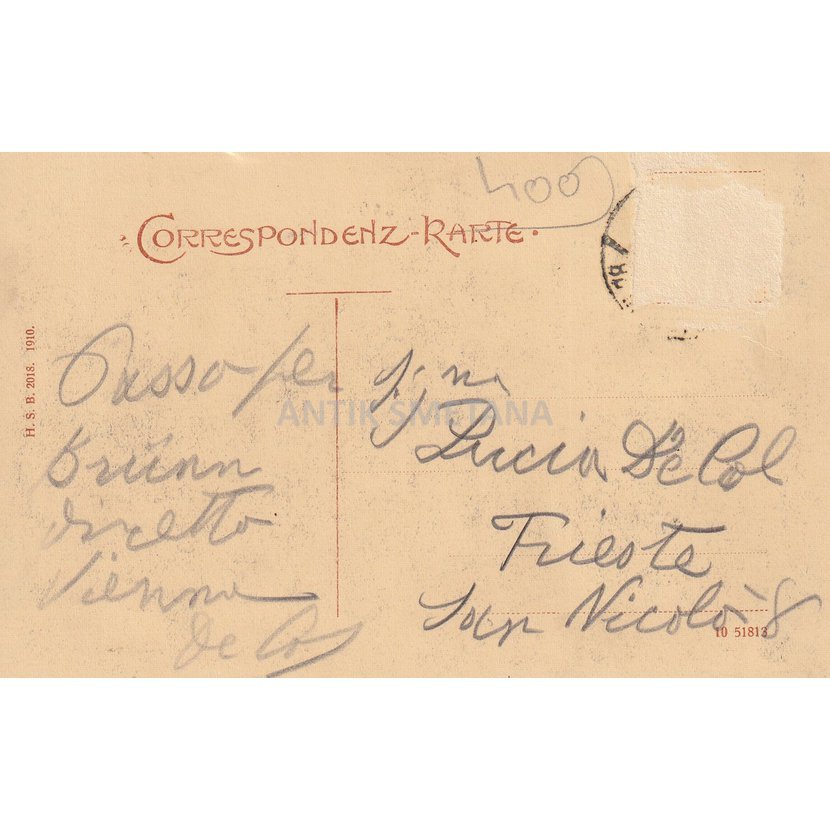 400
CORRESPONDENZ-KARTE.
H. S. B. 2018. 1910.
Passo per
Brünn
diretto
Vienna
De Col
Sig.na
Lucia De Col
Trieste
San Nicolò 8
10 51813
ANTIK SMETANA